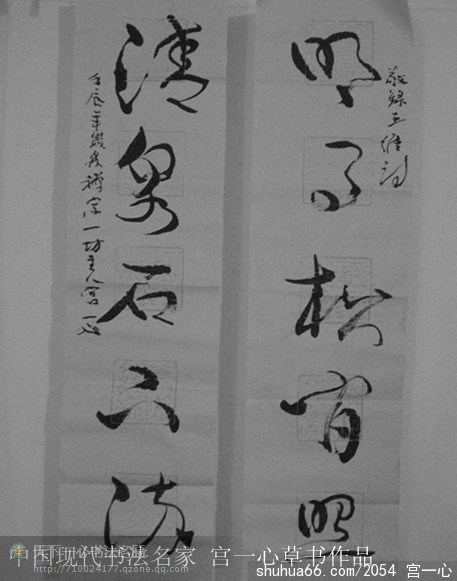 敬録王維詩
明月松間照
清泉石上流
壬辰年 字一坊主人宫一心
中国现代书法名家 宫一心草书作品
http://710024177.qzone.qq.com
shuhua66.com/2054 宫一心